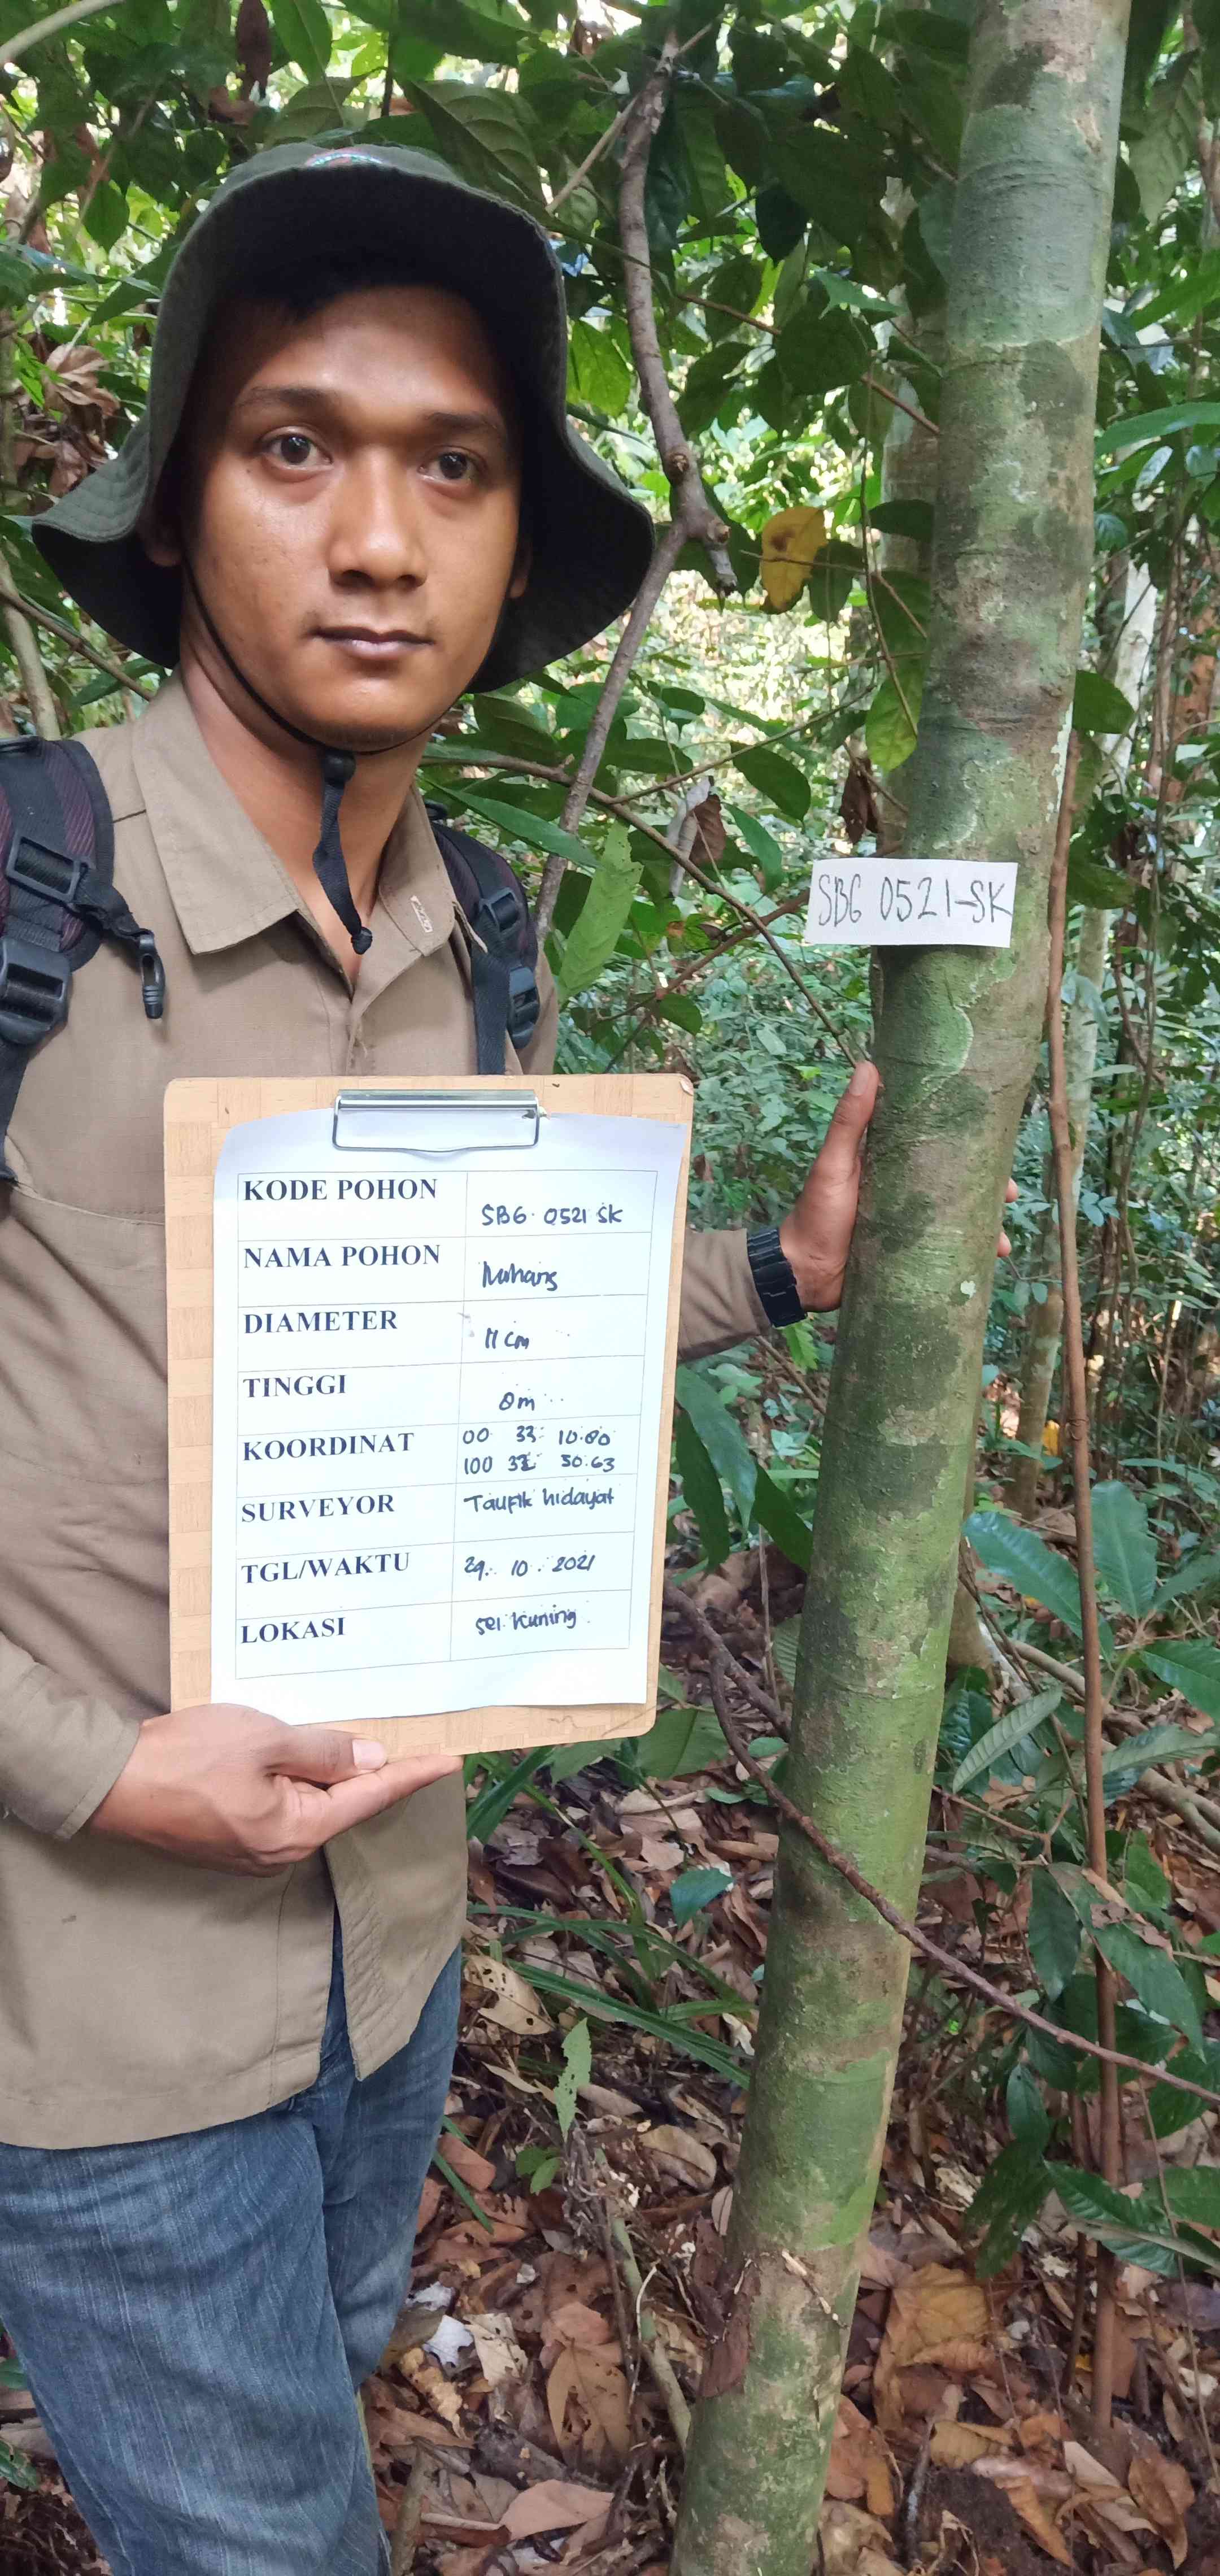 SBG 0521-SK
KODE POHON SBG 0521 SK
NAMA POHON
DIAMETER 11 cm
TINGGI 8m
KOORDINAT 00 33 10.80
100 50.63
SURVEYOR Taufik hidayat
TGL/WAKTU 29. 10. 2021
LOKASI sei kuning